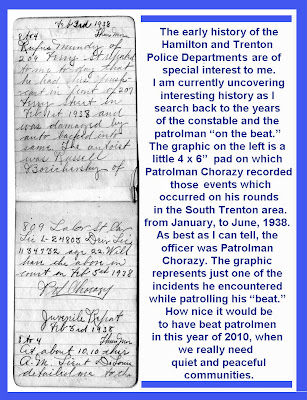 Feb 3rd 1938
8 to 4
Rufus Mundy of
209 Ferry St
to me that
in front of 207
Ferry Street on
Feb 1st 1938 and
was damaged by
auto
same. The autoist
was Russell
of
809 Labor St
Lic L-24808 Driv Lic
1134732 age 22 Will
the above in
court on Feb 5th 1938
Ptl Chorazy
Juvenile Report
Feb 3rd 1938
8 to 4
At about 10.10 this
A.M. Lieut
detailed me to the
The early history of the
Hamilton and Trenton
Police Departments are of
special interest to me.
I am currently uncovering
interesting history as I
search back to the years
of the constable and the
patrolman "on the beat."
The graphic on the left is a
little 4 x 6" pad on which
Patrolman Chorazy recorded
those events which
occurred on his rounds
in the South Trenton area.
from January, to June, 1938.
As best as I can tell, the
officer was Patrolman
Chorazy. The graphic
represents just one of the
incidents he encountered
while patrolling his "beat."
How nice it would be
to have beat patrolmen
in this year of 2010, when
we really need
quiet and peaceful
communities.